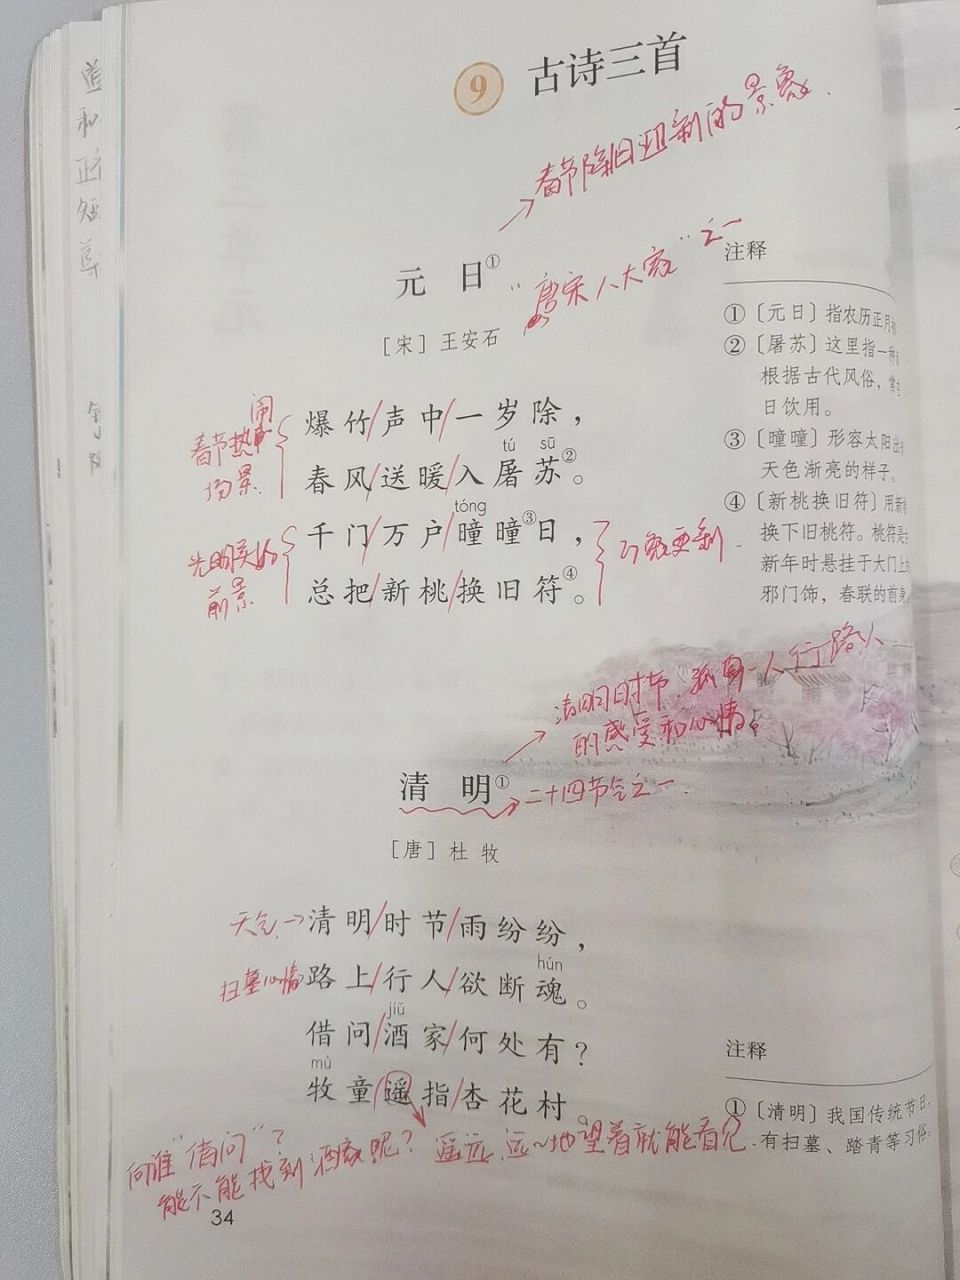 9 古诗三首
春节除旧迎新的景象.
元 日①
"唐宋八大家"之一
[宋] 王安石
春节热闹
场景
爆竹/声中/一岁除，
tú sū
春风/送暖/入屠苏②。
tóng
千门/万户/曈曈③日，
总把/新桃/换旧符④。
光明美好
前景
万象更新
注释
①〔元日〕指农历正月
②〔屠苏〕这里指一种
根据古代风俗，常
日饮用。
③〔曈曈〕形容太阳出
天色渐亮的样子。
④〔新桃换旧符〕用新
换下旧桃符。桃符是
新年时悬挂于大门上
邪门饰，春联的前身
清明时节，孤身一人行路人
的感受和心情。
清 明①
二十四节气之一.
[唐] 杜 牧
天气→清明/时节/雨纷纷，
hún
扫墓心情 路上/行人/欲断魂。
jiǔ
借问/酒家/何处有？
mù
牧童/遥指/杏花村。
注释
①〔清明〕我国传统节日，
有扫墓、踏青等习俗
向谁"借问"？
能不能找到酒家呢？
遥远，远~地望着就能看见.
34